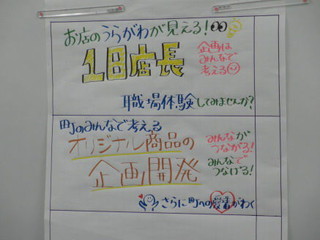 お店のうらがわが見える!
1日店長
企画は
みんなで
考える
職場体験してみませんか?
町のみんなで考える
オリジナル商品の
企画開発
みんなが
つながる!
みんなで
つなげる!
さらに町への愛着がわく